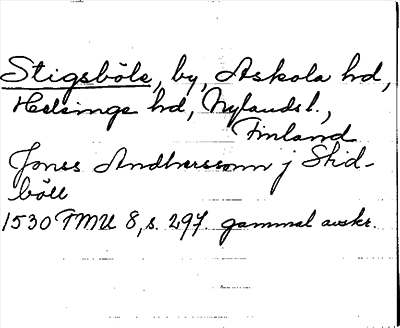 Stigsböle, by, Askola hd,
Helsinge hd, Nylands l.,
Finland
Jönss Andhersson j Stid-
böll
1530 FMU 8, s. 297. gammal avskr.